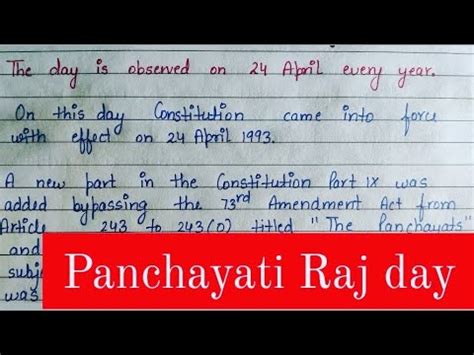 The day is observed on 24 April every year.
On this day Constitution came into force
with effect on 24 April 1993.
A new part in the Constitution Part IX was
added bypassing the 73rd Amendment Act from
Article 243 to 243(0) titled "The Panchayats"
and
subj
was
Panchayati Raj day